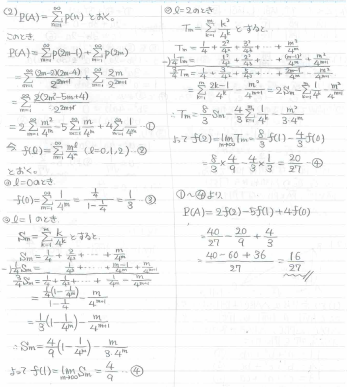 (2) P(A) = Σ_{n=1}^{∞} P(n) とおく。
このとき
P(A) = Σ_{m=1}^{∞} P(2m-1) + Σ_{m=1}^{∞} P(2m)
= Σ_{m=1}^{∞} (2m-2)(2m-4)/2^{2m+1} + Σ_{m=1}^{∞} 2m/2^{2m+1}
= Σ_{m=1}^{∞} 2(2m²-5m+4)/2^{2m+1}
= 2Σ_{m=1}^{∞} m²/4^m - 5Σ_{m=1}^{∞} m/4^m + 4Σ_{m=1}^{∞} 1/4^m ―①
f(l) = Σ_{m=1}^{∞} m^l/4^m (l=0,1,2) ―②
とおく。
l=0のとき
f(0) = Σ_{m=1}^{∞} 1/4^m = (1/4)/(1-1/4) = 1/3 ③
l=1のとき
S_m = Σ_{k=1}^{m} k/4^k とすると、
S_m = 1/4 + 2/4² + ··· + m/4^m
-) 1/4 S_m = 1/4² + ··· + (m-1)/4^m + m/4^{m+1}
3/4 S_m = 1/4 + 1/4² + ··· + 1/4^m - m/4^{m+1}
= (1/4)(1-1/4^m)/(1-1/4) - m/4^{m+1}
= 1/3(1-1/4^m) - m/4^{m+1}
∴ S_m = 4/9(1-1/4^m) - m/(3·4^m)
よって f(1) = lim_{m→∞} S_m = 4/9 ··· ④
l=2のとき
T_m = Σ_{k=1}^{m} k²/4^k とすると、
T_m = 1/4 + 2²/4² + 3²/4³ + ··· + m²/4^m
-) 1/4 T_m = 1/4² + 2²/4³ + ··· + (m-1)²/4^m + m²/4^{m+1}
3/4 T_m = 1/4 + 3/4² + 5/4³ + ··· + (2m-1)/4^m - m²/4^{m+1}
= Σ_{k=1}^{m} (2k-1)/4^k - m²/4^{m+1} = 2S_m - Σ_{k=1}^{m} 1/4^k - m²/4^{m+1}
∴ T_m = 8/3 S_m - 4/3 Σ_{k=1}^{m} 1/4^k - m²/(3·4^m)
よって f(2) = lim_{m→∞} T_m = 8/3 f(1) - 4/3 f(0)
= 8/3 × 4/9 - 4/3 × 1/3 = 20/27 ―④
①~④より、
P(A) = 2f(2) - 5f(1) + 4f(0)
= 40/27 - 20/9 + 4/3
= (40-60+36)/27 = 16/27